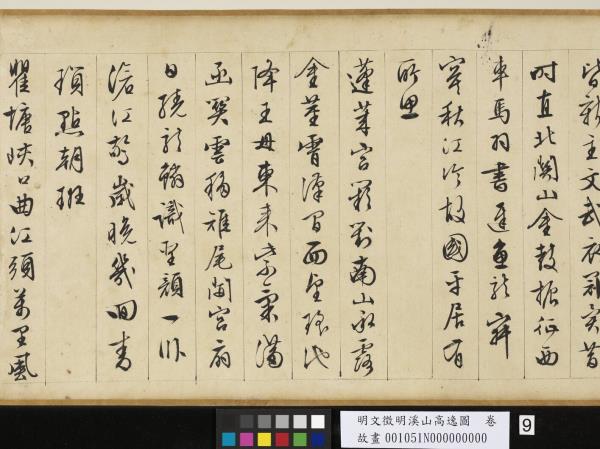 皆新主文武衣冠異昔
時直北關山金鼓振征西
車馬羽書遲魚龍寂
寞秋江冷故國平居有
所思
蓬萊宮闕對南山承露
金莖霄漢間西望瑤池
降王母東來紫氣滿
函關雲移雉尾開宮扇
日繞龍鱗識聖顏一臥
滄江驚歲晚幾回青
瑣點朝班
瞿塘峽口曲江頭萬里風
明文徵明溪山高逸圖 卷
故畫 001051N000000000
9